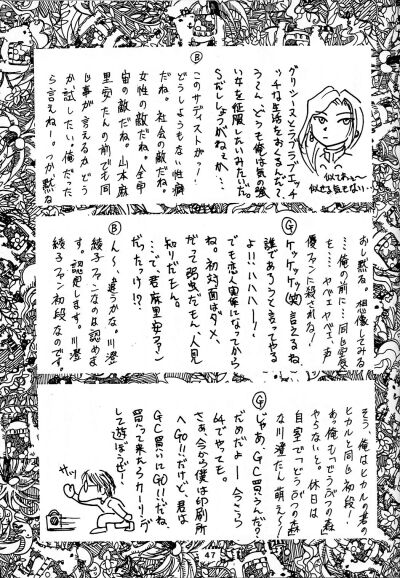 グリシーヌとラブラブエッチ
ッチな生活をおくるんだ〜
う〜ん、どうも俺は気の強
い女を征服したいみたいだ。
Sだしょうがねェか…
似てれぇ〜
似せる気もない…
Ⓑ
このサディストが!
どうしようもない性癖
だね。社会の敵だね。
女性の敵だね。全宇
宙の敵だね。山本麻
里安たんの前でも同
じ事が言えるかどう
か試したい。俺だった
ら言えねー。つか黙る
おし黙る。想像してみる
を…俺の前に…同じ空気
を…ヤベェヤベェ、声
優ファンに殺されるな!
Ⓖ
ケッケッケッ(笑)言えるね、
誰であろうと言ってやる
よ!!ハハハハー!
でも恋人関係になってから
ね。初対面はダメ、
だって弱虫だもん、人見
知りだもん。
…で、君麻里安ファン
だったっけ!?
Ⓑ
ん〜、違うかな。川澄
綾子ファンなのは認めま
す。認定します。川澄
綾子ファン初段なのです。
そう、俺はヒカルの碁の
ヒカルと同じ初段!
あっ俺もどうぶつの森
やらないと。休日は
自室でどうぶつの森
な川澄たん萌え〜
Ⓖ
じゃあ、GC買うんだ?
だめだよー今さら
64でやっても。
さぁ、今から僕は印刷所
へGO!!だけど、君は
GC買いにGO!!だね
買って来たらカービィ
して遊ぼうぜ!
サッ
47